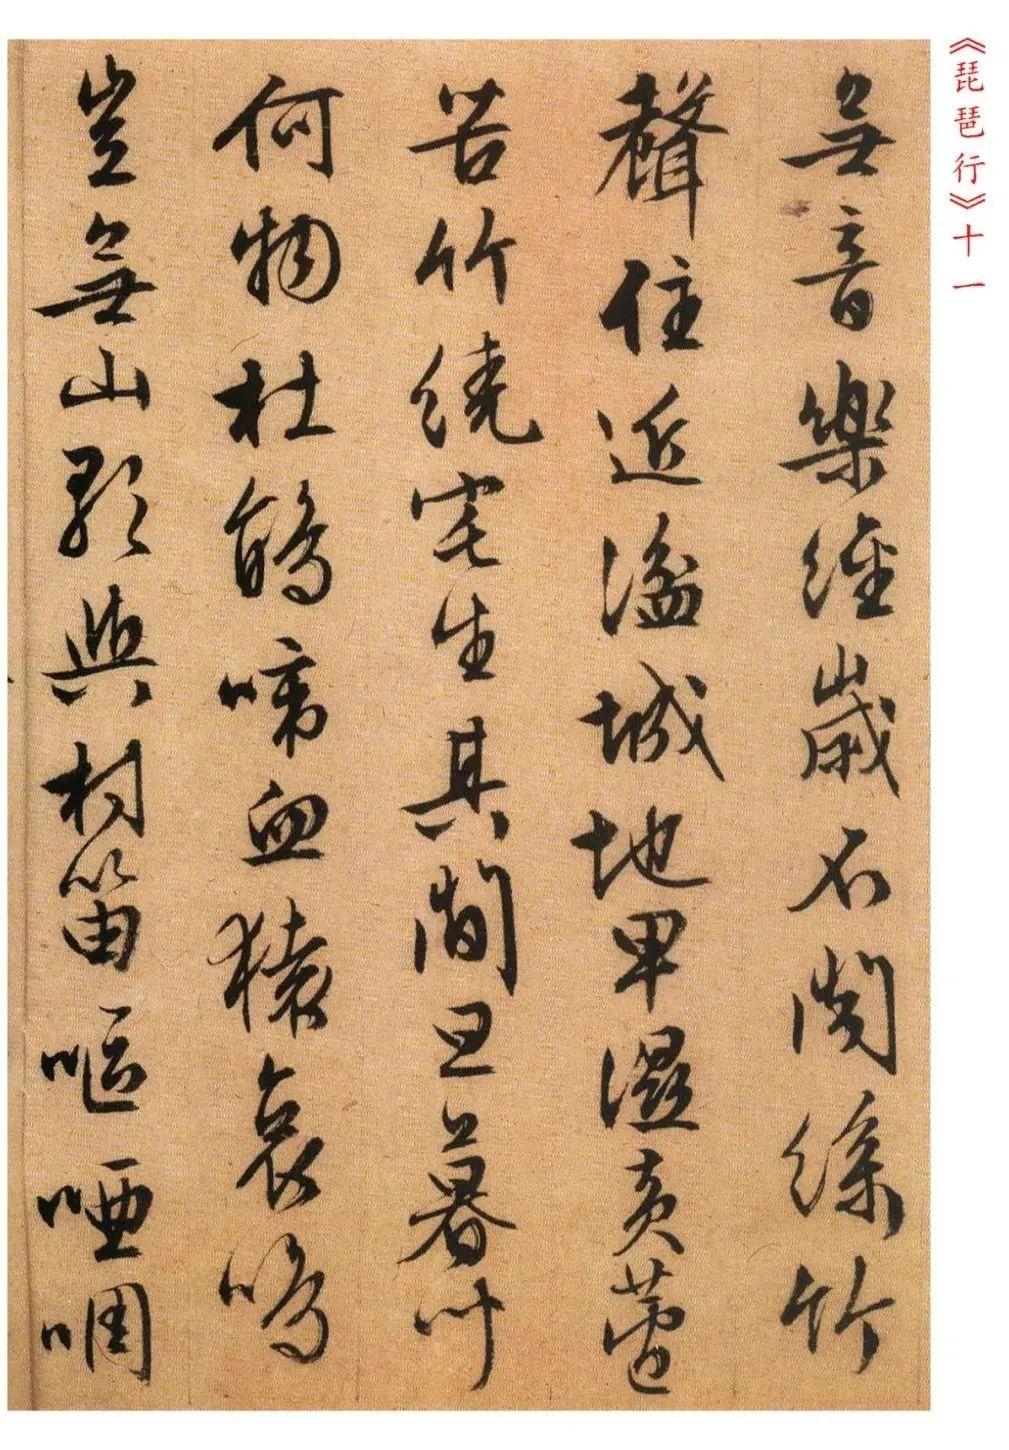 《琵琶行》十一
無音樂經歲不聞絲竹
聲住近湓城地卑濕黃蘆
苦竹繞宅生其間旦暮
何物杜鵑啼血猿哀鳴
豈無山歌與村笛嘔啞啁